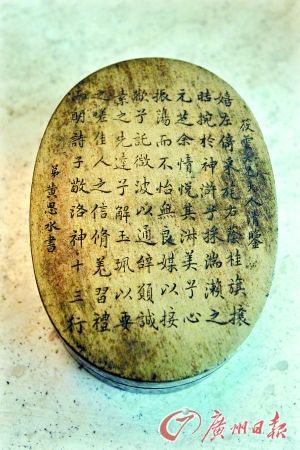 筱雲大人鑒
嬉左倚采旄右蔭桂旗攘
晧捥於神滸兮採湍瀨之
元芝余情悅其淑美兮心
振蕩而不怡無良媒以接
歡兮託微波以通辭願誠
素之先達兮解玉珮以要
之嗟佳人之信脩羌習禮
而明詩子敬洛神十三行
弟黃思永書
廣州日報